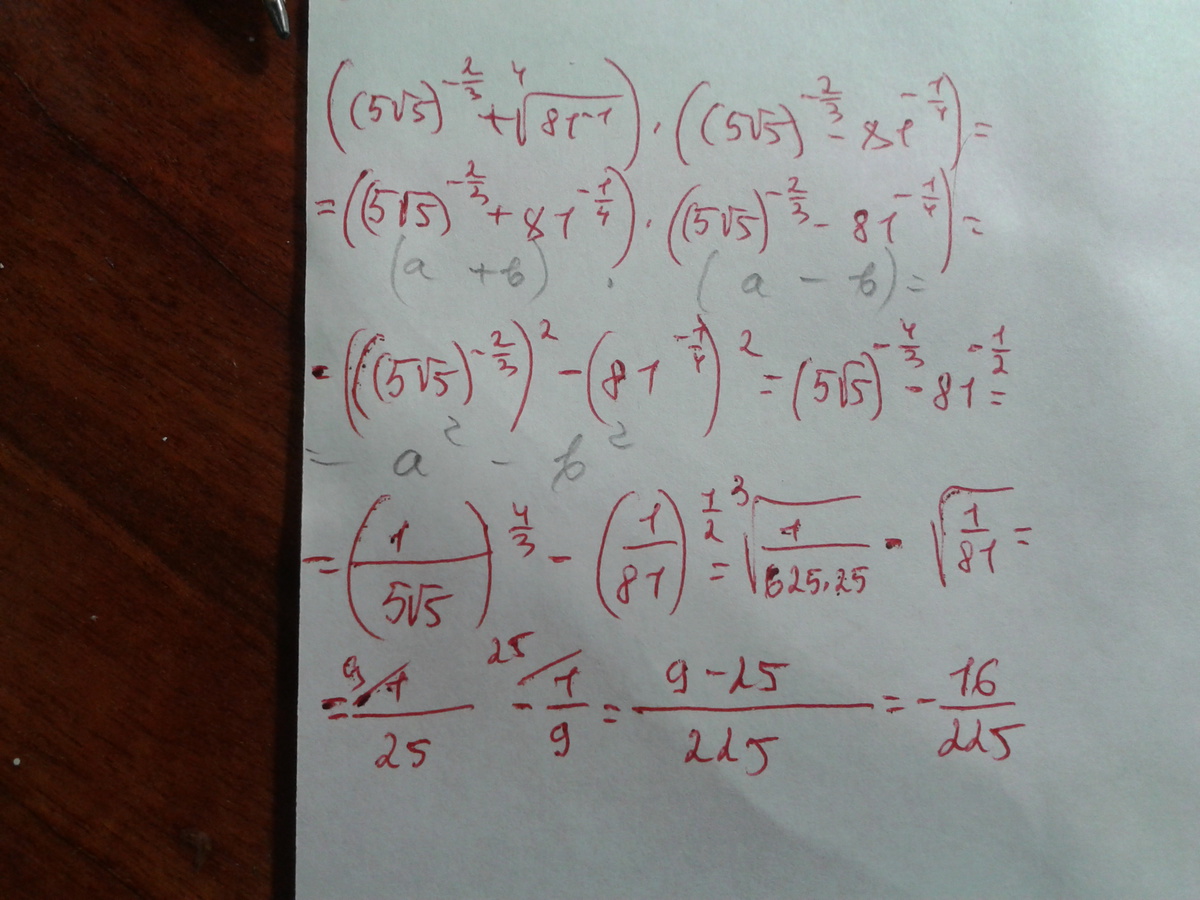 ((5√5)^(-2/3) + ⁴√(81⁻¹)) · ((5√5)^(-2/3) - 81^(-1/4)) =
= ((5√5)^(-2/3) + 81^(-1/4)) · ((5√5)^(-2/3) - 81^(-1/4)) =
(a + b) · (a - b) =
= (((5√5)^(-2/3))² - (81^(-1/4))² = (5√5)^(-4/3) - 81^(-1/2) =
= a² - b²
= (1/(5√5))^(4/3) - (1/81)^(1/2) = ³√(1/(625·25)) - √(1/81) =
= ⁹⁄1/25 - ²⁵⁄1/9 = (9-25)/225 = -16/225